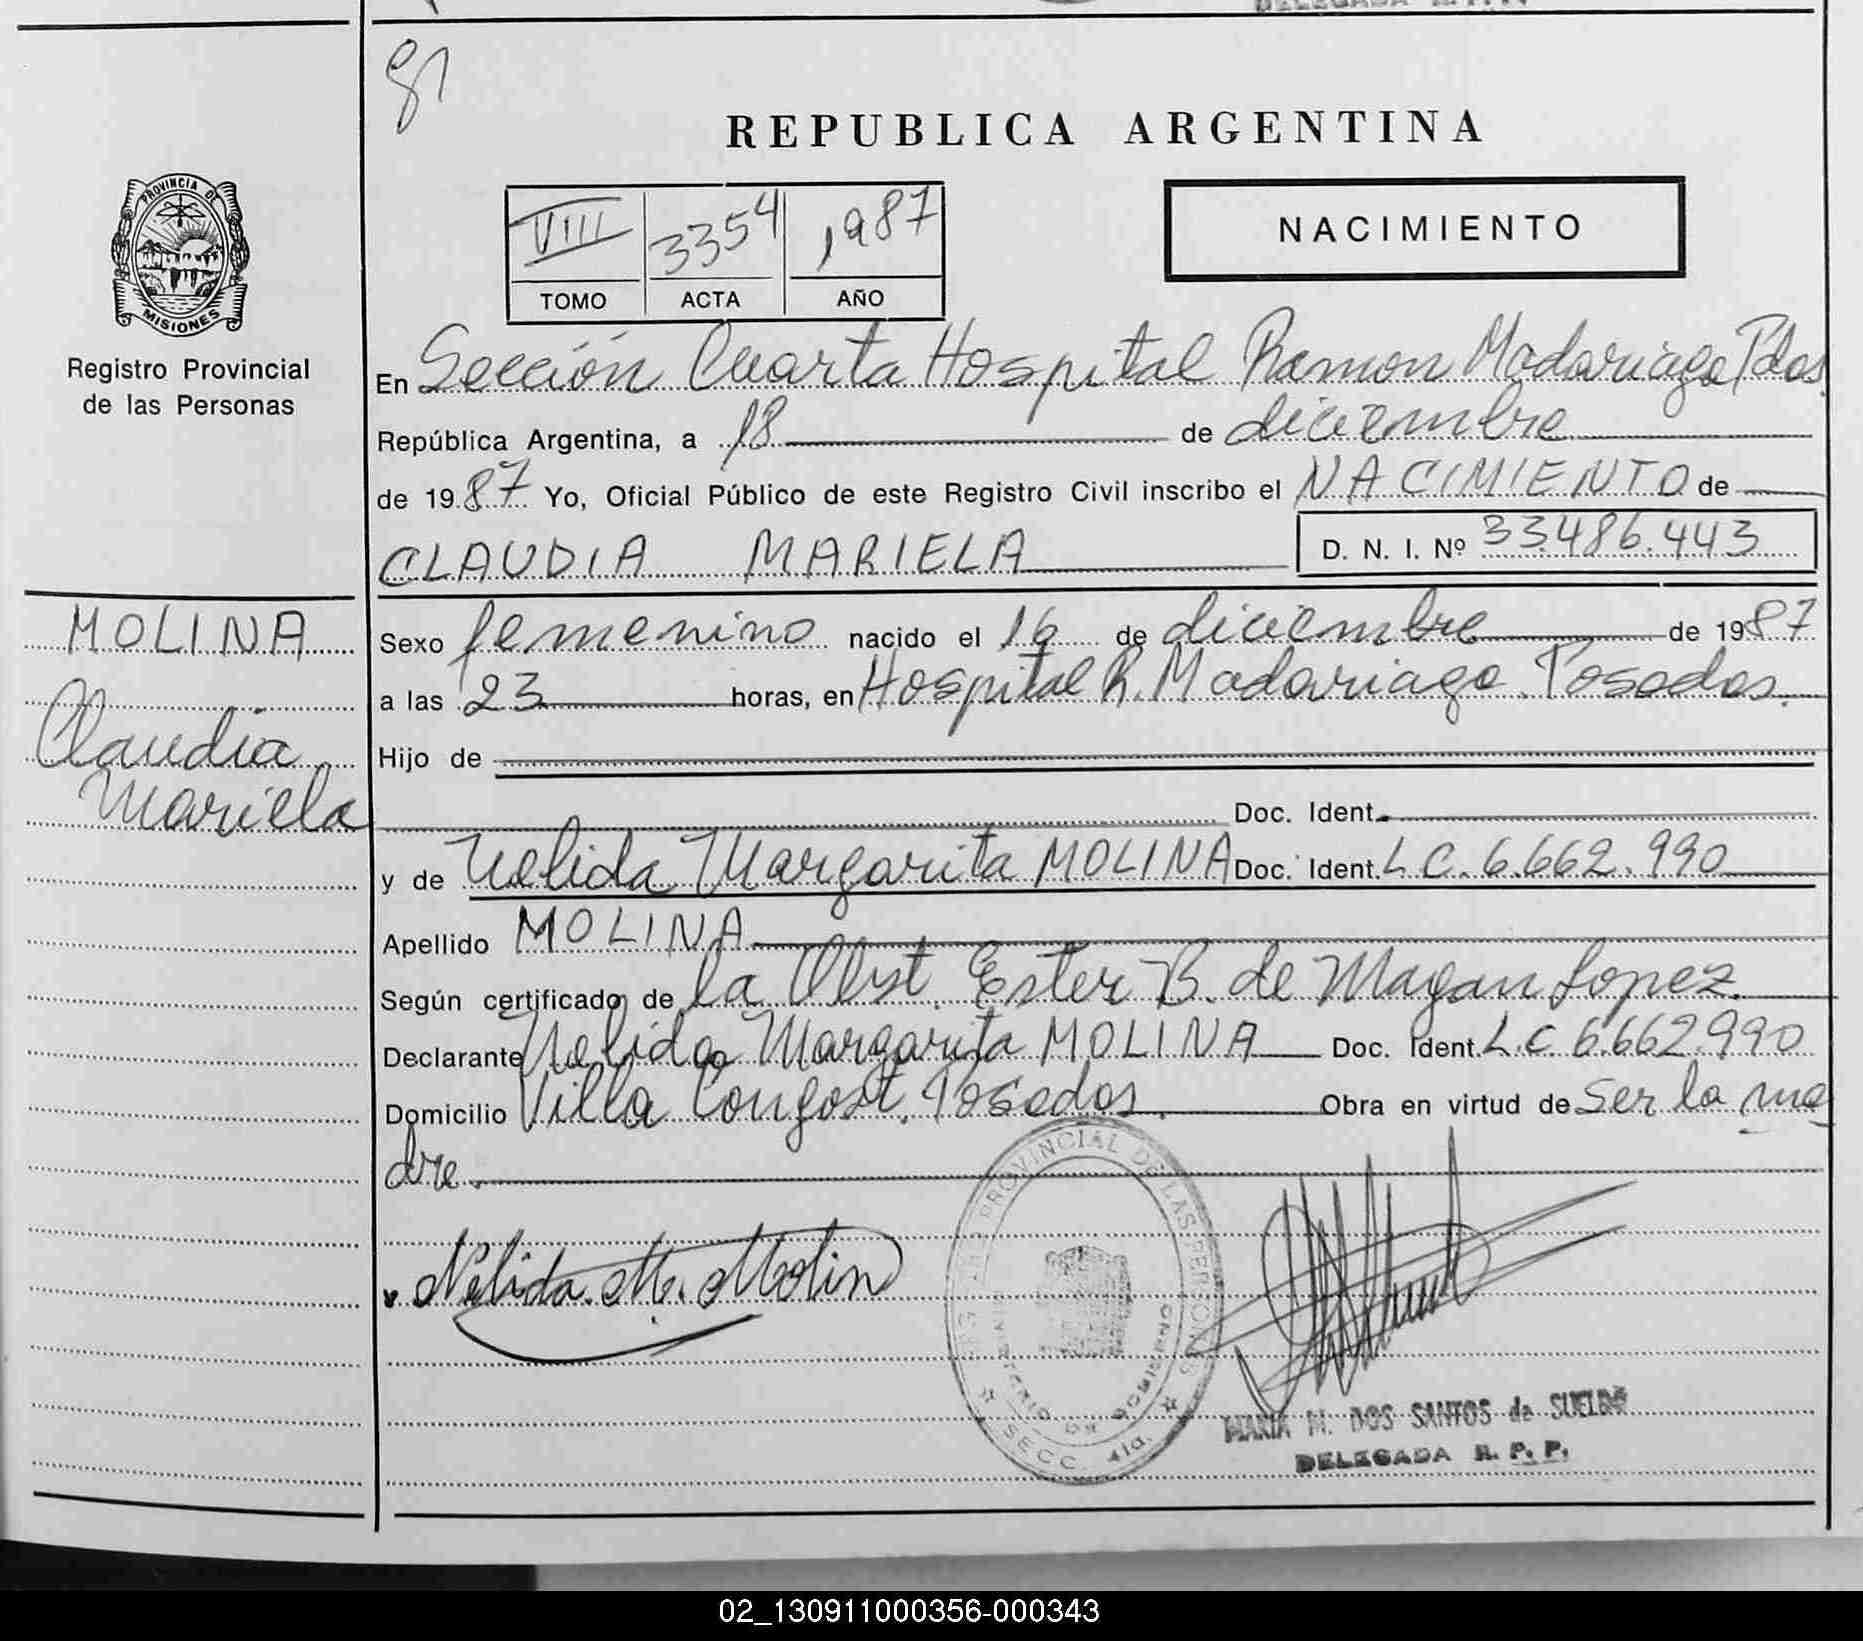 DELEGADA R.P.P.
REPUBLICA ARGENTINA
PROVINCIA DE
MISIONES
Registro Provincial
de las Personas
VIII 3354 1987
TOMO ACTA AÑO
NACIMIENTO
En Sección Cuarta Hospital Ramon Madariaga, Pdas.
República Argentina, a 18 de diciembre
de 1987 Yo, Oficial Público de este Registro Civil inscribo el NACIMIENTO de
CLAUDIA MARIELA D. N. I. Nº 33.486.443
MOLINA
Claudia
Mariela
Sexo femenino nacido el 16 de diciembre de 1987
a las 23 horas, en Hospital R. Madariaga. Posadas.
Hijo de
Doc. Ident.
y de Nelida Margarita MOLINA Doc. Ident. L C. 6.662.990
Apellido MOLINA
Según certificado de la Obst. Ester B. de Magan Lopez.
Declarante Nelida Margarita MOLINA Doc. Ident. L.C. 6.662.990
Domicilio Villa Congost. Posadas. Obra en virtud de Ser la ma
dre.
Nélida. M. Molin
PROVINCIAL DE LAS PERSONAS
SECC. 4ta.
MARIA M. DOS SANTOS de SUELDO
DELEGADA R. P. P.
02_130911000356-000343